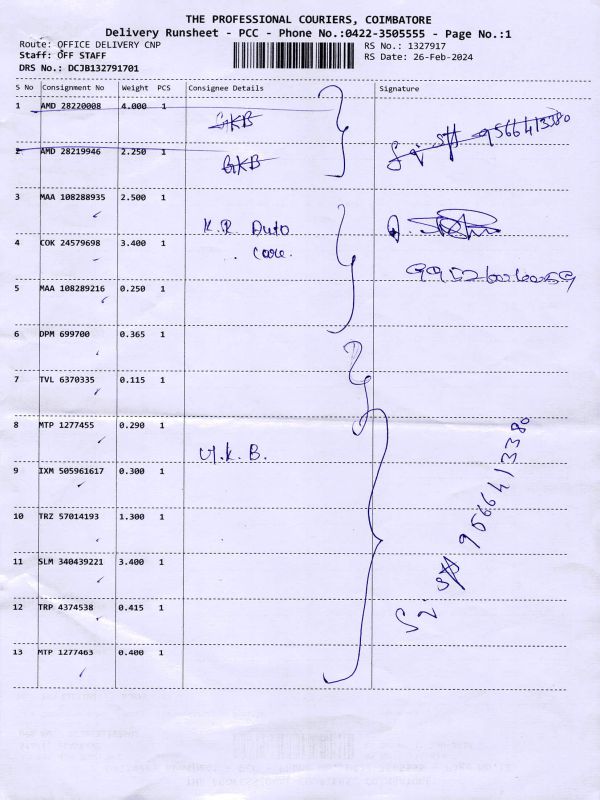 THE PROFESSIONAL COURIERS, COIMBATORE
Delivery Runsheet - PCC - Phone No.:0422-3505555 - Page No.:1
Route: OFFICE DELIVERY CNP
RS No.: 1327917
Staff: OFF STAFF
RS Date: 26-Feb-2024
DRS No.: DCJB132791701
S No Consignment No Weight PCS Consignee Details Signature
1 AMD 28220008 4.000 1
GKB
9566413380
2 AMD 28219946 2.250 1
GKB
3 MAA 108288935 2.500 1
K.R Auto
4 COK 24579698 3.400 1
Care.
5 MAA 108289216 0.250 1
6 DPM 699700 0.365 1
7 TVL 6370335 0.115 1
8 MTP 1277455 0.290 1
G.K.B.
9566413380
9 IXM 505961617 0.300 1
10 TRZ 57014193 1.300 1
11 SLM 340439221 3.400 1
12 TRP 4374538 0.415 1
13 MTP 1277463 0.400 1